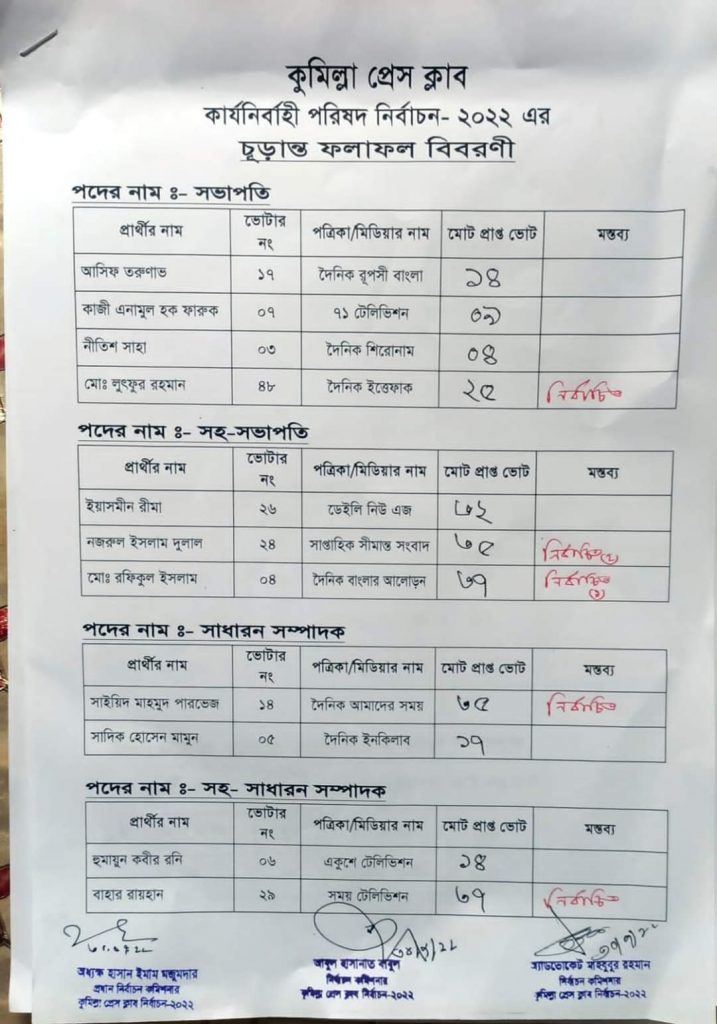 কুমিল্লা প্রেস ক্লাব
কার্যনির্বাহী পরিষদ নির্বাচন- ২০২২ এর
চূড়ান্ত ফলাফল বিবরণী
পদের নাম ঃ- সভাপতি
প্রার্থীর নাম ভোটার নং পত্রিকা/মিডিয়ার নাম মোট প্রাপ্ত ভোট মন্তব্য
আসিফ তরুণাভ ১৭ দৈনিক রূপসী বাংলা ১৪
কাজী এনামুল হক ফারুক ০৭ ৭১ টেলিভিশন ০৯
নীতিশ সাহা ০৩ দৈনিক শিরোনাম ০৪
মোঃ লুৎফুর রহমান ৪৮ দৈনিক ইত্তেফাক ২৫ নির্বাচিত
পদের নাম ঃ- সহ-সভাপতি
প্রার্থীর নাম ভোটার নং পত্রিকা/মিডিয়ার নাম মোট প্রাপ্ত ভোট মন্তব্য
ইয়াসমীন রীমা ২৬ ডেইলি নিউ এজ ৩২
নজরুল ইসলাম দুলাল ২৪ সাপ্তাহিক সীমান্ত সংবাদ ৩৫ নির্বাচিত (২)
মোঃ রফিকুল ইসলাম ০৪ দৈনিক বাংলার আলোড়ন ৩৭ নির্বাচিত (১)
পদের নাম ঃ- সাধারন সম্পাদক
প্রার্থীর নাম ভোটার নং পত্রিকা/মিডিয়ার নাম মোট প্রাপ্ত ভোট মন্তব্য
সাইয়িদ মাহমুদ পারভেজ ১৪ দৈনিক আমাদের সময় ৩৫ নির্বাচিত
সাদিক হোসেন মামুন ০৫ দৈনিক ইনকিলাব ১৭
পদের নাম ঃ- সহ- সাধারন সম্পাদক
প্রার্থীর নাম ভোটার নং পত্রিকা/মিডিয়ার নাম মোট প্রাপ্ত ভোট মন্তব্য
হুমায়ুন কবীর রনি ০৬ একুশে টেলিভিশন ১৪
বাহার রায়হান ২৯ সময় টেলিভিশন ৩৭ নির্বাচিত
অধ্যক্ষ হাসান ইমাম মজুমদার
প্রধান নির্বাচন কমিশনার
কুমিল্লা প্রেস ক্লাব নির্বাচন-২০২২
আবুল হাসানাত বাবুল
নির্বাচন কমিশনার
কুমিল্লা প্রেস ক্লাব নির্বাচন-২০২২
এ্যাডভোকেট মাহবুবুর রহমান
নির্বাচন কমিশনার
কুমিল্লা প্রেস ক্লাব নির্বাচন-২০২২